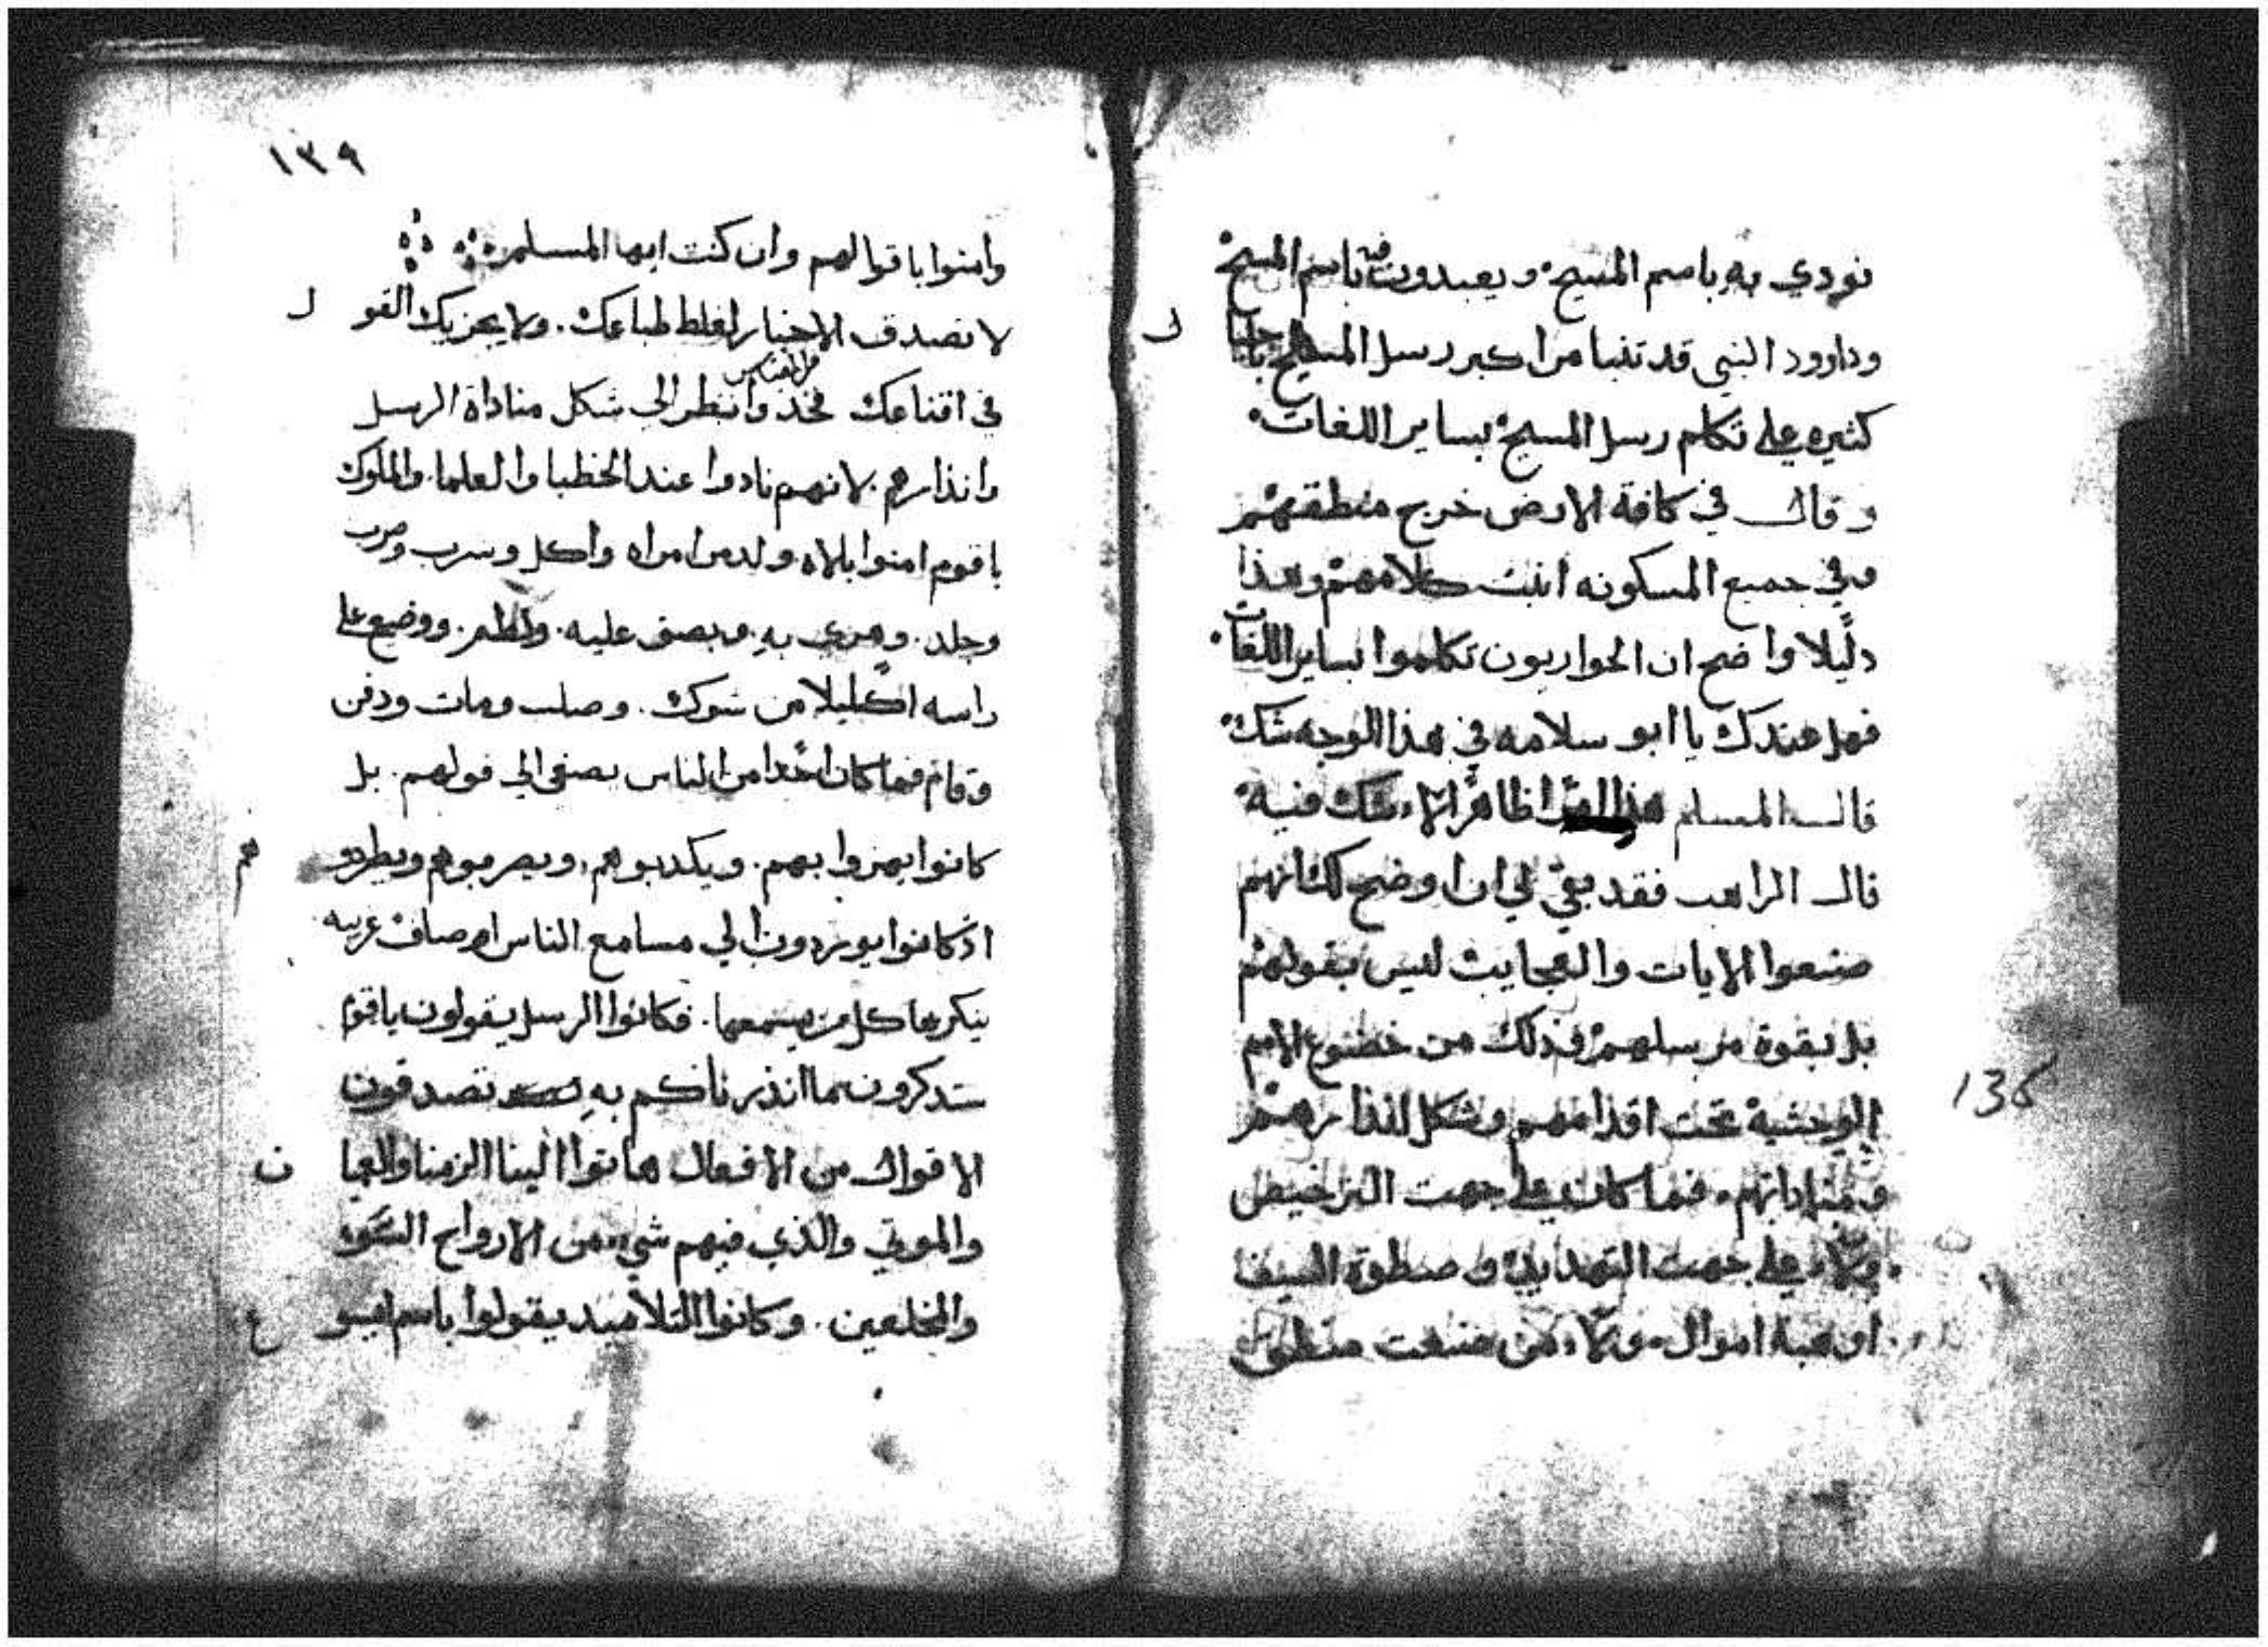 نودي به باسم المسيح ويعبدون فيه باسم المسيح
وداوود النبي قد تنبا من اكبر رسل المسيح باجيا ل
كثيره علي تكلم رسل المسيح بساير اللغات
وقال في كافة الارض خرج منطقهم
وفي جميع المسكونه انبت كلامهم وهذا
دليلا واضح ان الحواريون تكلموا بساير اللغات
فهل عندك يا ابو سلامه في هذا الوجه شك
قال المسلم هذا ظاهرا لاء شك فيه
قال الراهب فقد بقي لي ان اوضح لك انهم
صنعوا الايات والعجايب ليس بقولهم
بل بقوة مرسلهم وذلك من خضوع الامم
الوحشية تحت اقدامهم وشكل انذارهم
ومناداتهم فما كان علي جهت الترخيص
ولاء علي جهت التهديد وصطوة السيف
او هبة اموال ولاء من صنعت منطق
136
١٣٩
وامنوا باقوالهم وان كنت ايها المسلم
لا تصدق الاخبار لغلظ طباعك ولا يجزيك القو ل
في اقناعك فخذ من القياس وانظر الي شكل مناداة الرسل
وانذارهم لانهم نادوا عند الخطبا والعلما والملوك
يا قوم امنوا بلاه ولد من امراه واكل وسرب وضرب
وجلد وهزي به وبصق عليه ولطم ووضع علي
راسه اكليلا من شوك وصلب ومات ودفن
وقام فما كان احدا من الناس يصغي الي قولهم بل
كانوا يهزوا بهم ويكدبوهم ويضربوهم ويطردو هم
اذ كانوا يوردون الي مسامع الناس اوصاف غريبه
ينكرها كل من يسمعها فكانوا الرسل يقولون ياقوم
ستدكرون بما انذرناكم به تصدقون
الاقوال من الافعال هاتوا الينا الزمنا والعميا ن
والموتي والذي فيهم شي من الارواح السو
والمخلعين وكانوا التلاميد يقولوا باسم ايسو ع